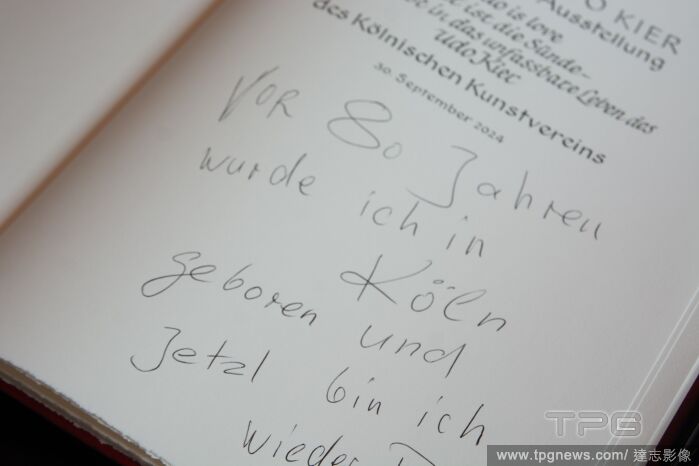 O KIER
Ausstellung
is love
ist die Sünde-
in das unfassbare Leben des
Udo Kier
des Kölnischen Kunstvereins
30. September 2024
VOR 80 Jahren
wurde ich in
Köln
geboren und
Jetzt bin ich
wieder
TPG
www.tpgnews.com/ 達志影像